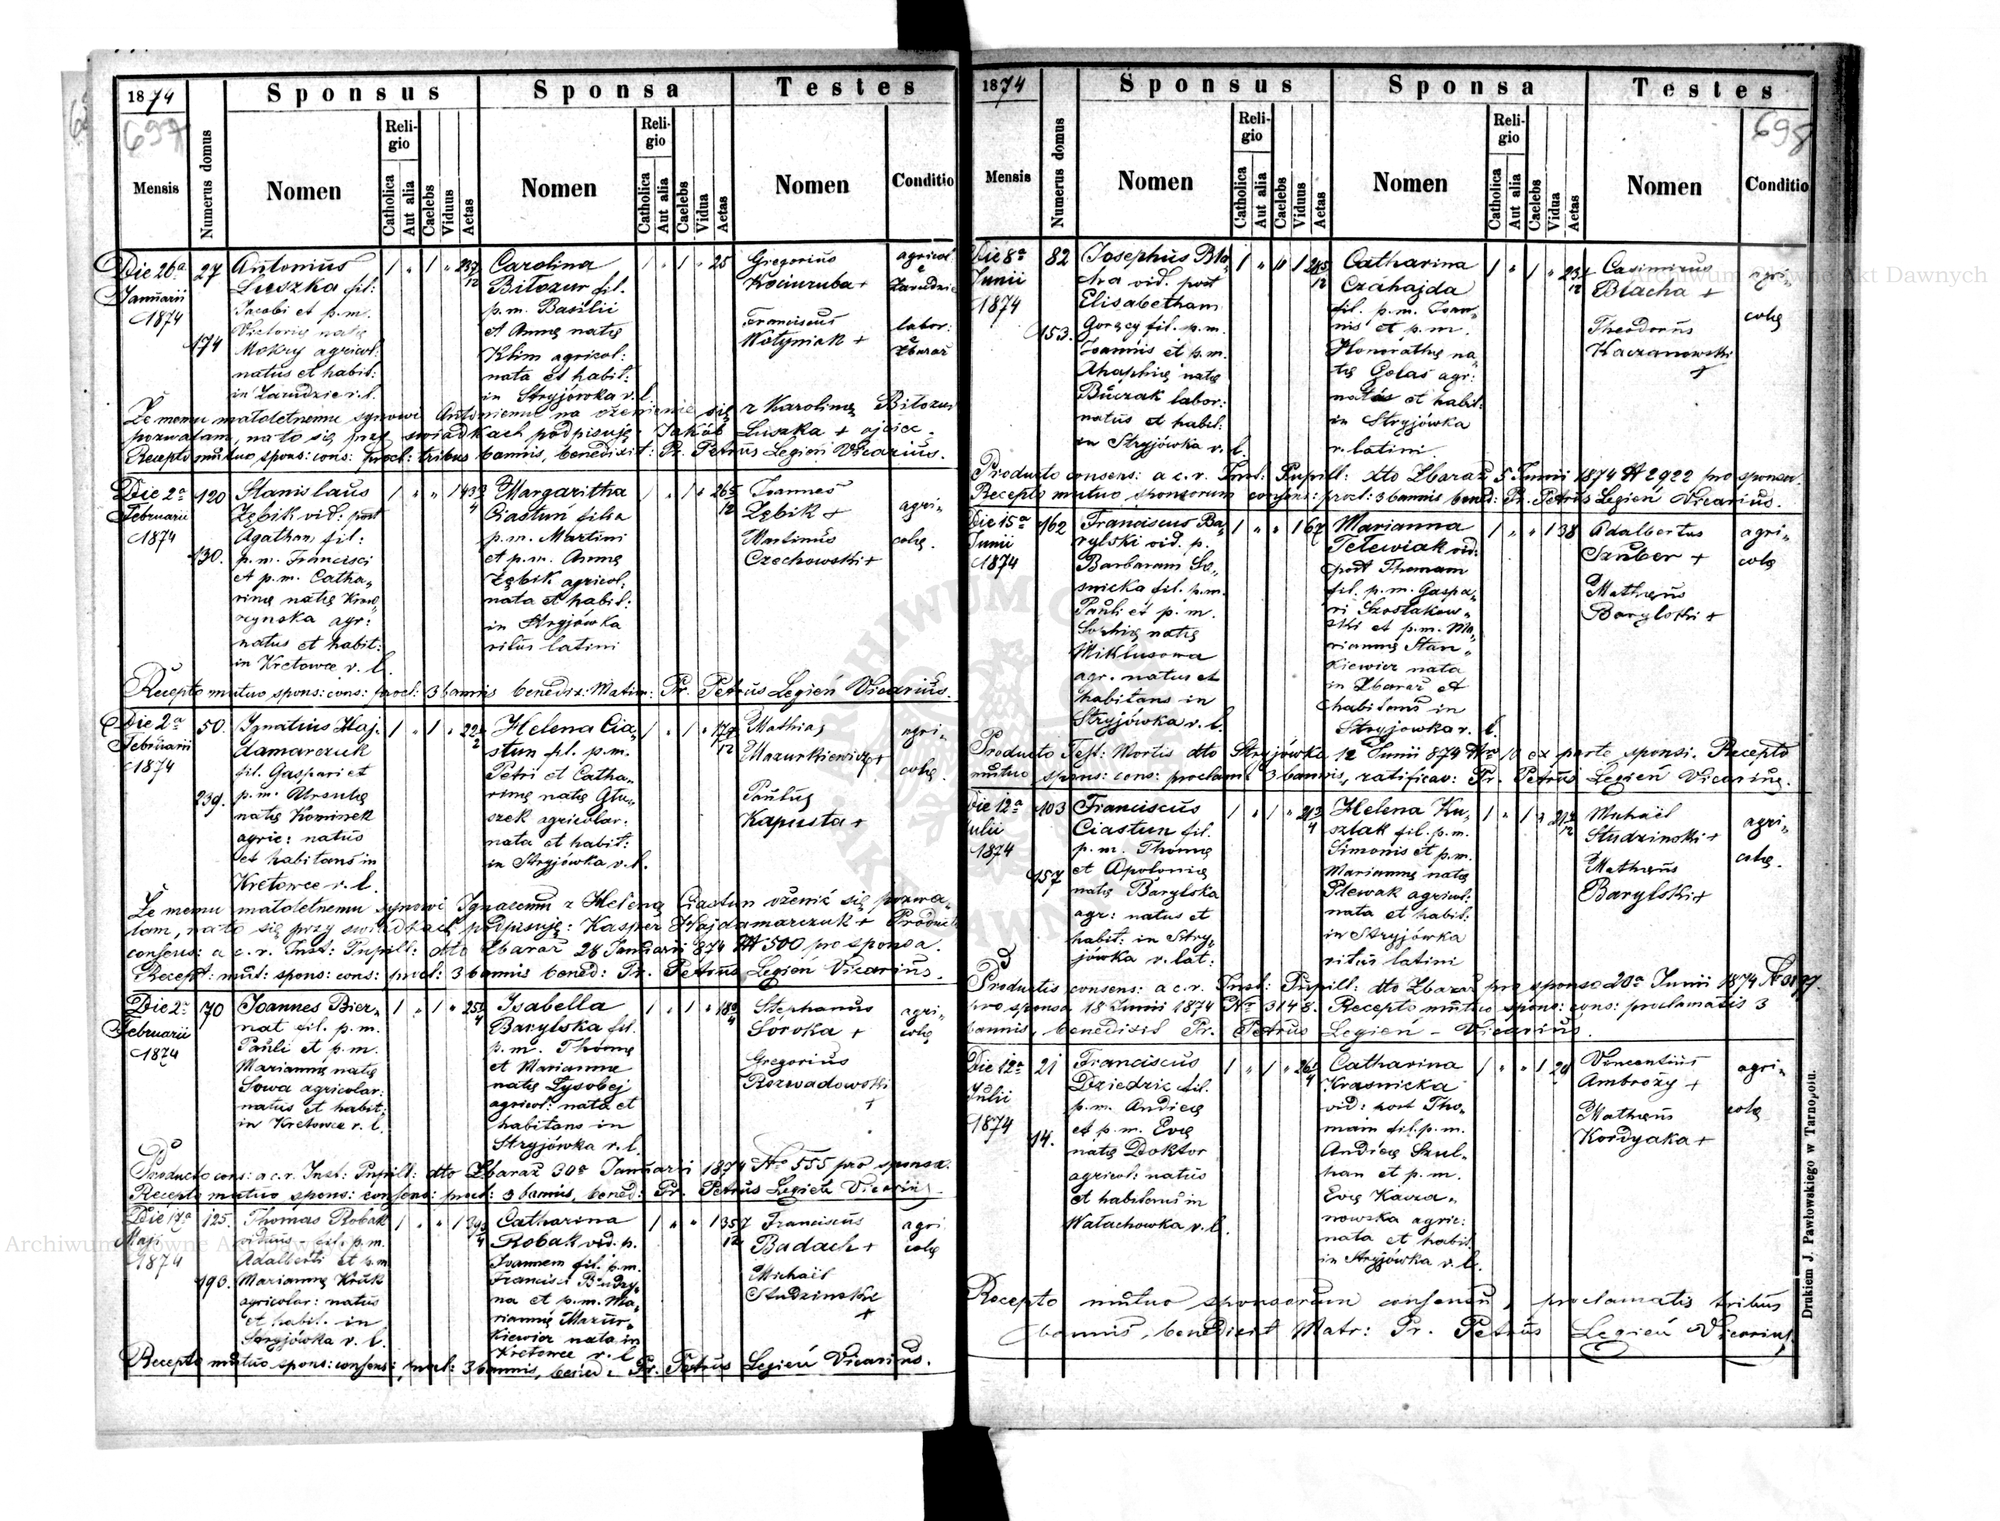 1874
Sponsus
Sponsa
Testes
697
Mensis
Numerus domus
Nomen
Religio
Catholica
Aut alia
Caelebs
Viduus
Aetas
Nomen
Religio
Catholica
Aut alia
Caelebs
Vidua
Aetas
Nomen
Conditio
Die 26a
Januarii
1874
27
174
Antonius
Luszka fil:
Jacobi et p.m.
Victoriæ natæ
Mokry agricol:
natus et habit:
in Zarudzie r.l.
Carolina
Bilozur fil.
p.m. Basilii
et Annæ natæ
Klim agricol:
nata et habit:
in Stryjówka r.l.
25
Gregorius
Kociuruba +
Franciscus
Wołyniak +
agricol.
Zarudzie
labor:
Zbaraż
Że memu małoletnemu synowi Antoniemu na ożenienie się z Karoliną Bilozur
pozwalam, na to się przy świadkach podpisuję: Jakób Luszka + ojciec.
Recepto mutuo spons: cons: procl: tribus bannis, benedixit: Pr. Petrus Legień Vicarius.
Die 2a
Februarii
1874
120
130.
Stanislaus
Zębik vid: post
Agatham fil:
p.m. Francisci
et p.m. Catha-
rinæ natæ
agr:
natus et habit:
in Kretowce r.l.
Margaritha
Ciastuń filia
p.m. Martini
et p.m. Annæ
Zębik agricol:
nata et habit:
in Stryjówka
ritus latini
Joannes
Zębik +
Martinus
Czechowski +
agri-
colæ.
Recepto mutuo spons: cons: procl: 3 bannis benedix: Matim: Pr. Petrus Legień Vicarius.
Die 2a
Februarii
1874
50.
239.
Ignatius Haj-
damarczuk
fil. Gaspari et
p.m. Ursulæ
natæ Kominek
agric: natus
et habitans in
Kretowce r.l.
Helena Cia-
stun fil. p.m.
Petri et Catha-
rinæ natæ Głu-
szek agricolar:
nata et habit:
in Stryjówka r.l.
Mathias
Mazurkiewicz +
Paulus
Kapusta +
agri-
colæ.
Że memu małoletnemu synowi Ignacemu z Heleną Ciastun ożenić się pozwa-
lam, na to się przy świadkach podpisuję: Kasper Hajdamarczuk + Producto
consens: a c.r. Inst: Pupill: dto Zbaraż 28 Januarii 874 N 500 pro sponsa.
Recept: mut: spons: cons: procl: 3 bannis bened: Pr. Petrus Legień Vicarius.
Die 2a
Februarii
1874
70
Joannes Bier-
nat fil. p.m.
Pauli et p.m.
Mariannæ natæ
Sowa agricolar:
natus et habit:
in Kretowce r.l.
Isabella
Barylska fil.
p.m. Thomæ
et Mariannæ
natæ Łysobej
agricol: nata et
habitans in
Stryjówka r.l.
Stephanus
Soroka +
Gregorius
Rozwadowski
+
agri-
colæ
Producto cons: a c.r. Inst: Pupill: dto Zbaraż 30a Januarii 1874 No 555 pro sponsa.
Recepto mutuo spons: consens: procl: 3 bannis, bened: Pr. Petrus Legień Vicarius.
Die 17a
Maji
1874
125.
190.
Thomas Robak
viduus - fil. p.m.
Adalberti et p.m.
Mariannæ Kruk
agricolar: natus
et habit. in
Stryjówka r.l.
Catharina
Robak vid. p.
Joannem fil. p.m.
Francisci Budzy-
na et p.m. Ma-
riannæ Mazur-
kiewicz nata in
Kretowce r.l.
Franciscus
Badach +
Michaël
Studzinski
+
agri
colæ
Recepto mutuo spons: consens:, procl: 3 bannis, bened: Pr. Petrus Legień Vicarius.
1874
Sponsus
Sponsa
Testes
698
Mensis
Numerus domus
Nomen
Religio
Catholica
Aut alia
Caelebs
Viduus
Aetas
Nomen
Religio
Catholica
Aut alia
Caelebs
Vidua
Aetas
Nomen
Conditio
Die 8a
Junii
1874
82
153.
Josephus Bla-
cha vid. post
Elisabetham
Gorący fil. p.m.
Joannis et p.m.
Ahaphiæ natæ
Buczak labor:
natus et habit:
in Stryjówka r.l.
Catharina
Czahajda
fil. p.m. Joan-
nis et p.m.
Honorathæ na-
tæ Golas agr:
nata et habit:
in Stryjówka
r. latini.
Casimirus
Błacha +
Theodorus
Kaczanowski
+
agri-
colæ
Producto consens: a c.r. Inst: Pupill: dto Zbaraż 5 Junii 1874 N 2922 pro sponsa.
Recepto mutuo sponsorum consens: procl: 3 bannis bened: Pr. Petrus Legień Vicarius.
Die 15a
Junii
1874
162
Franciscus Ba-
rylski vid. p.
Barbaram So-
snicka fil. p.m.
Pauli et p.m.
Sophiæ natæ
Miklusowa
agr. natus et
habitans in
Stryjówka r.l.
Marianna
Telewiak vid:
post Thomam
fil. p.m. Gaspa-
ri Szostakow-
ski et p.m. Ma-
riannæ Stan-
kiewicz nata
in Zbaraż et
habitans in
Stryjowka r.l.
38
Adalbertus
Szuber +
Mathæus
Barylski +
agri-
colæ
Producto Test: Mortis dto Stryjówka 12 Junii 874 Nro 10 ex parte sponsi. Recepto
mutuo spons: cons: proclam: 3 bannis, ratificav: Pr. Petrus Legień Vicarius.
Die 12a
Julii
1874
103
157
Franciscus
Ciastun fil.
p.m. Thomæ
et Apoloniæ
natæ Barylska
agr: natus et
habit: in Stry-
jówka r. lat:
Helena Ku-
sztak fil. p.m.
Simonis et p.m.
Mariannæ natæ
Plewak agricul:
nata et habit:
in Stryjówka
ritus latini
Michaël
Studzinski +
Mathæus
Barylski +
agri-
colæ.
Productis consens: a c.r. Inst: Pupill: dto Zbaraż pro sponso 20a Junii 1874
pro sponsa 18 Junii 1874 No 3148. Recepto mutuo spons: cons: proclamatis 3
bannis, benedixit Pr. Petrus Legień - Vicarius.
Die 12a
Julii
1874
21
14.
Franciscus
Dziedzic fil.
p.m. Andreæ
et p.m. Evæ
natæ Doktor
agricol: natus
et habitans in
Wałachowka r.l.
Catharina
Krasnicka
vid: post Tho-
mam fil. p.m.
Andreæ Szul-
han et p.m.
Evæ Kacza-
nowska agric:
nata et habit.
in Stryjówka r.l.
Vincentius
Ambroży +
Mathæus
Kordyaka +
agri-
colæ
Recepto mutuo sponsorum consensu, proclamatis tribus
bannis, benedixit Matr: Pr. Petrus Legień Vicarius,
Drukiem J. Pawłowskiego w Tarnopolu.
Archiwum Główne Akt Dawnych
Archiwum Główne Akt Dawnych